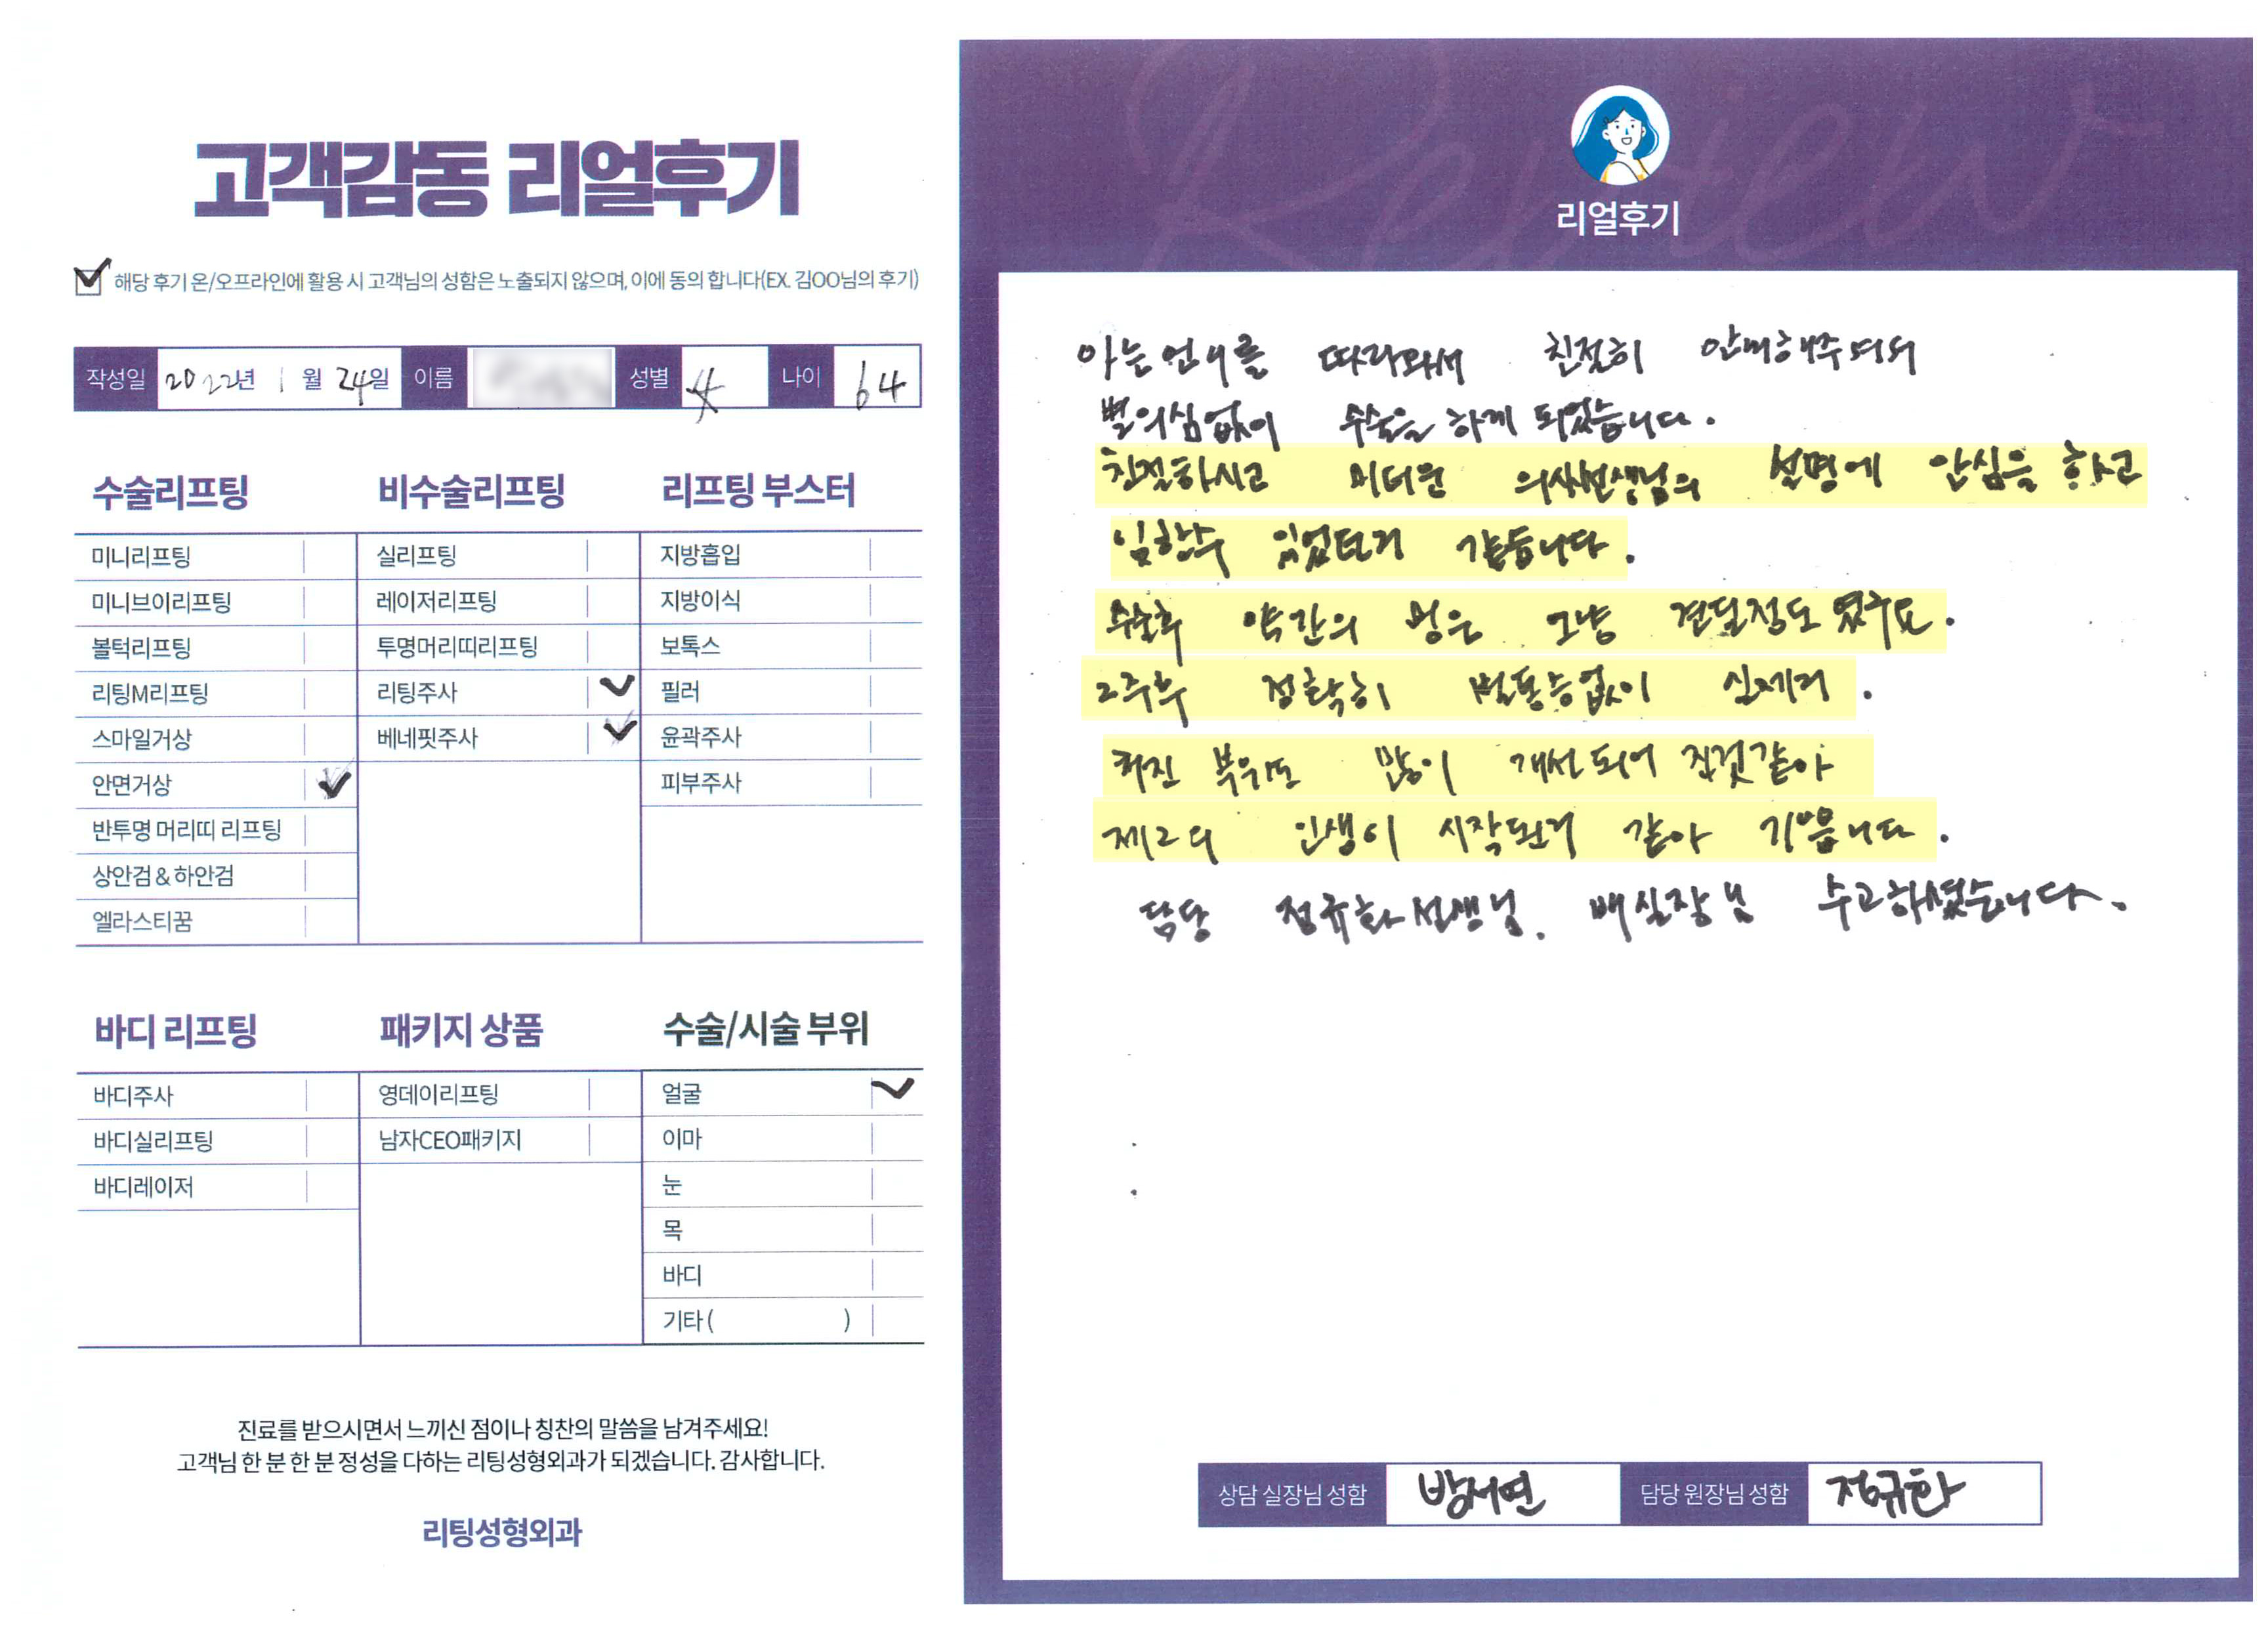 고객감동 리얼후기
해당 후기 온/오프라인에 활용 시 고객님의 성함은 노출되지 않으며, 이에 동의 합니다(EX. 김OO님의 후기)
작성일 2022년 1월 24일 이름 성별 나이 64
수술리프팅 비수술리프팅 리프팅 부스터
미니리프팅 실리프팅 지방흡입
미니브이리프팅 레이저리프팅 지방이식
볼턱리프팅 투명머리띠리프팅 보톡스
리팅M리프팅 리팅주사 필러
스마일거상 베네핏주사 윤곽주사
안면거상 피부주사
반투명 머리띠 리프팅
상안검 & 하안검
엘라스티꿈
바디 리프팅 패키지 상품 수술/시술 부위
바디주사 영데이리프팅 얼굴
바디실리프팅 남자CEO패키지 이마
바디레이저 눈
목
바디
기타 ( )
진료를 받으시면서 느끼신 점이나 칭찬의 말씀을 남겨주세요!
고객님 한 분 한 분 정성을 다하는 리팅성형외과가 되겠습니다. 감사합니다.
리팅성형외과
Review
리얼후기
아는 언니를 따라와서 친절히 안내해주셔서
별의심없이 수술을 하게 되었습니다.
친절하시고 미더운 의사선생님의 설명에 안심을 하고
임할수 있었던거 같습니다.
수술후 약간의 멍은 그냥 견딜정도 였구요.
2주후 정확히 별통증없이 실제거.
처진 부위도 많이 개선되어 진것같아
제2의 인생이 시작된거 같아 기쁩니다.
담당 정규화선생님. 배실장님 수고하셨습니다.
상담 실장님 성함 방서연 담당 원장님 성함 정규화